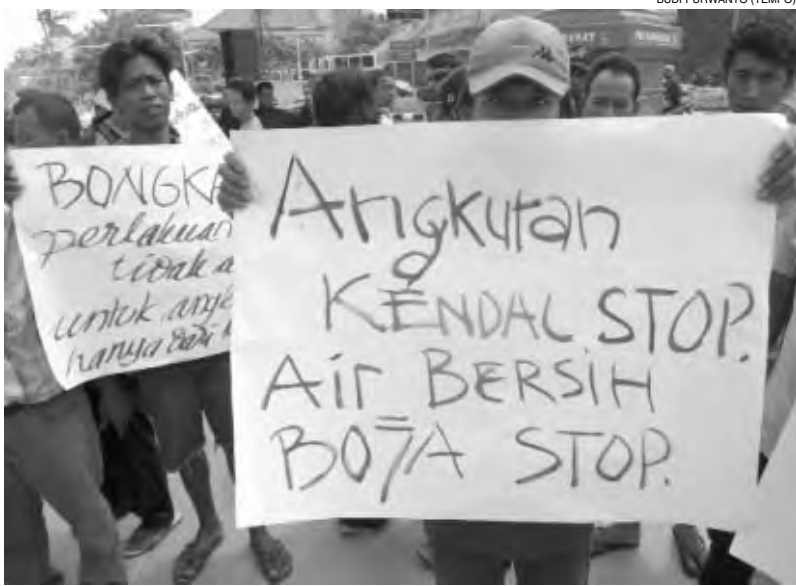 BUDI PURWANTO (TEMPO)
BONGKA
perlakuan
tidak a
untuk angk
hanya dari
Angkutan
KENDAL STOP.
Air BERSIH
BOJA STOP.